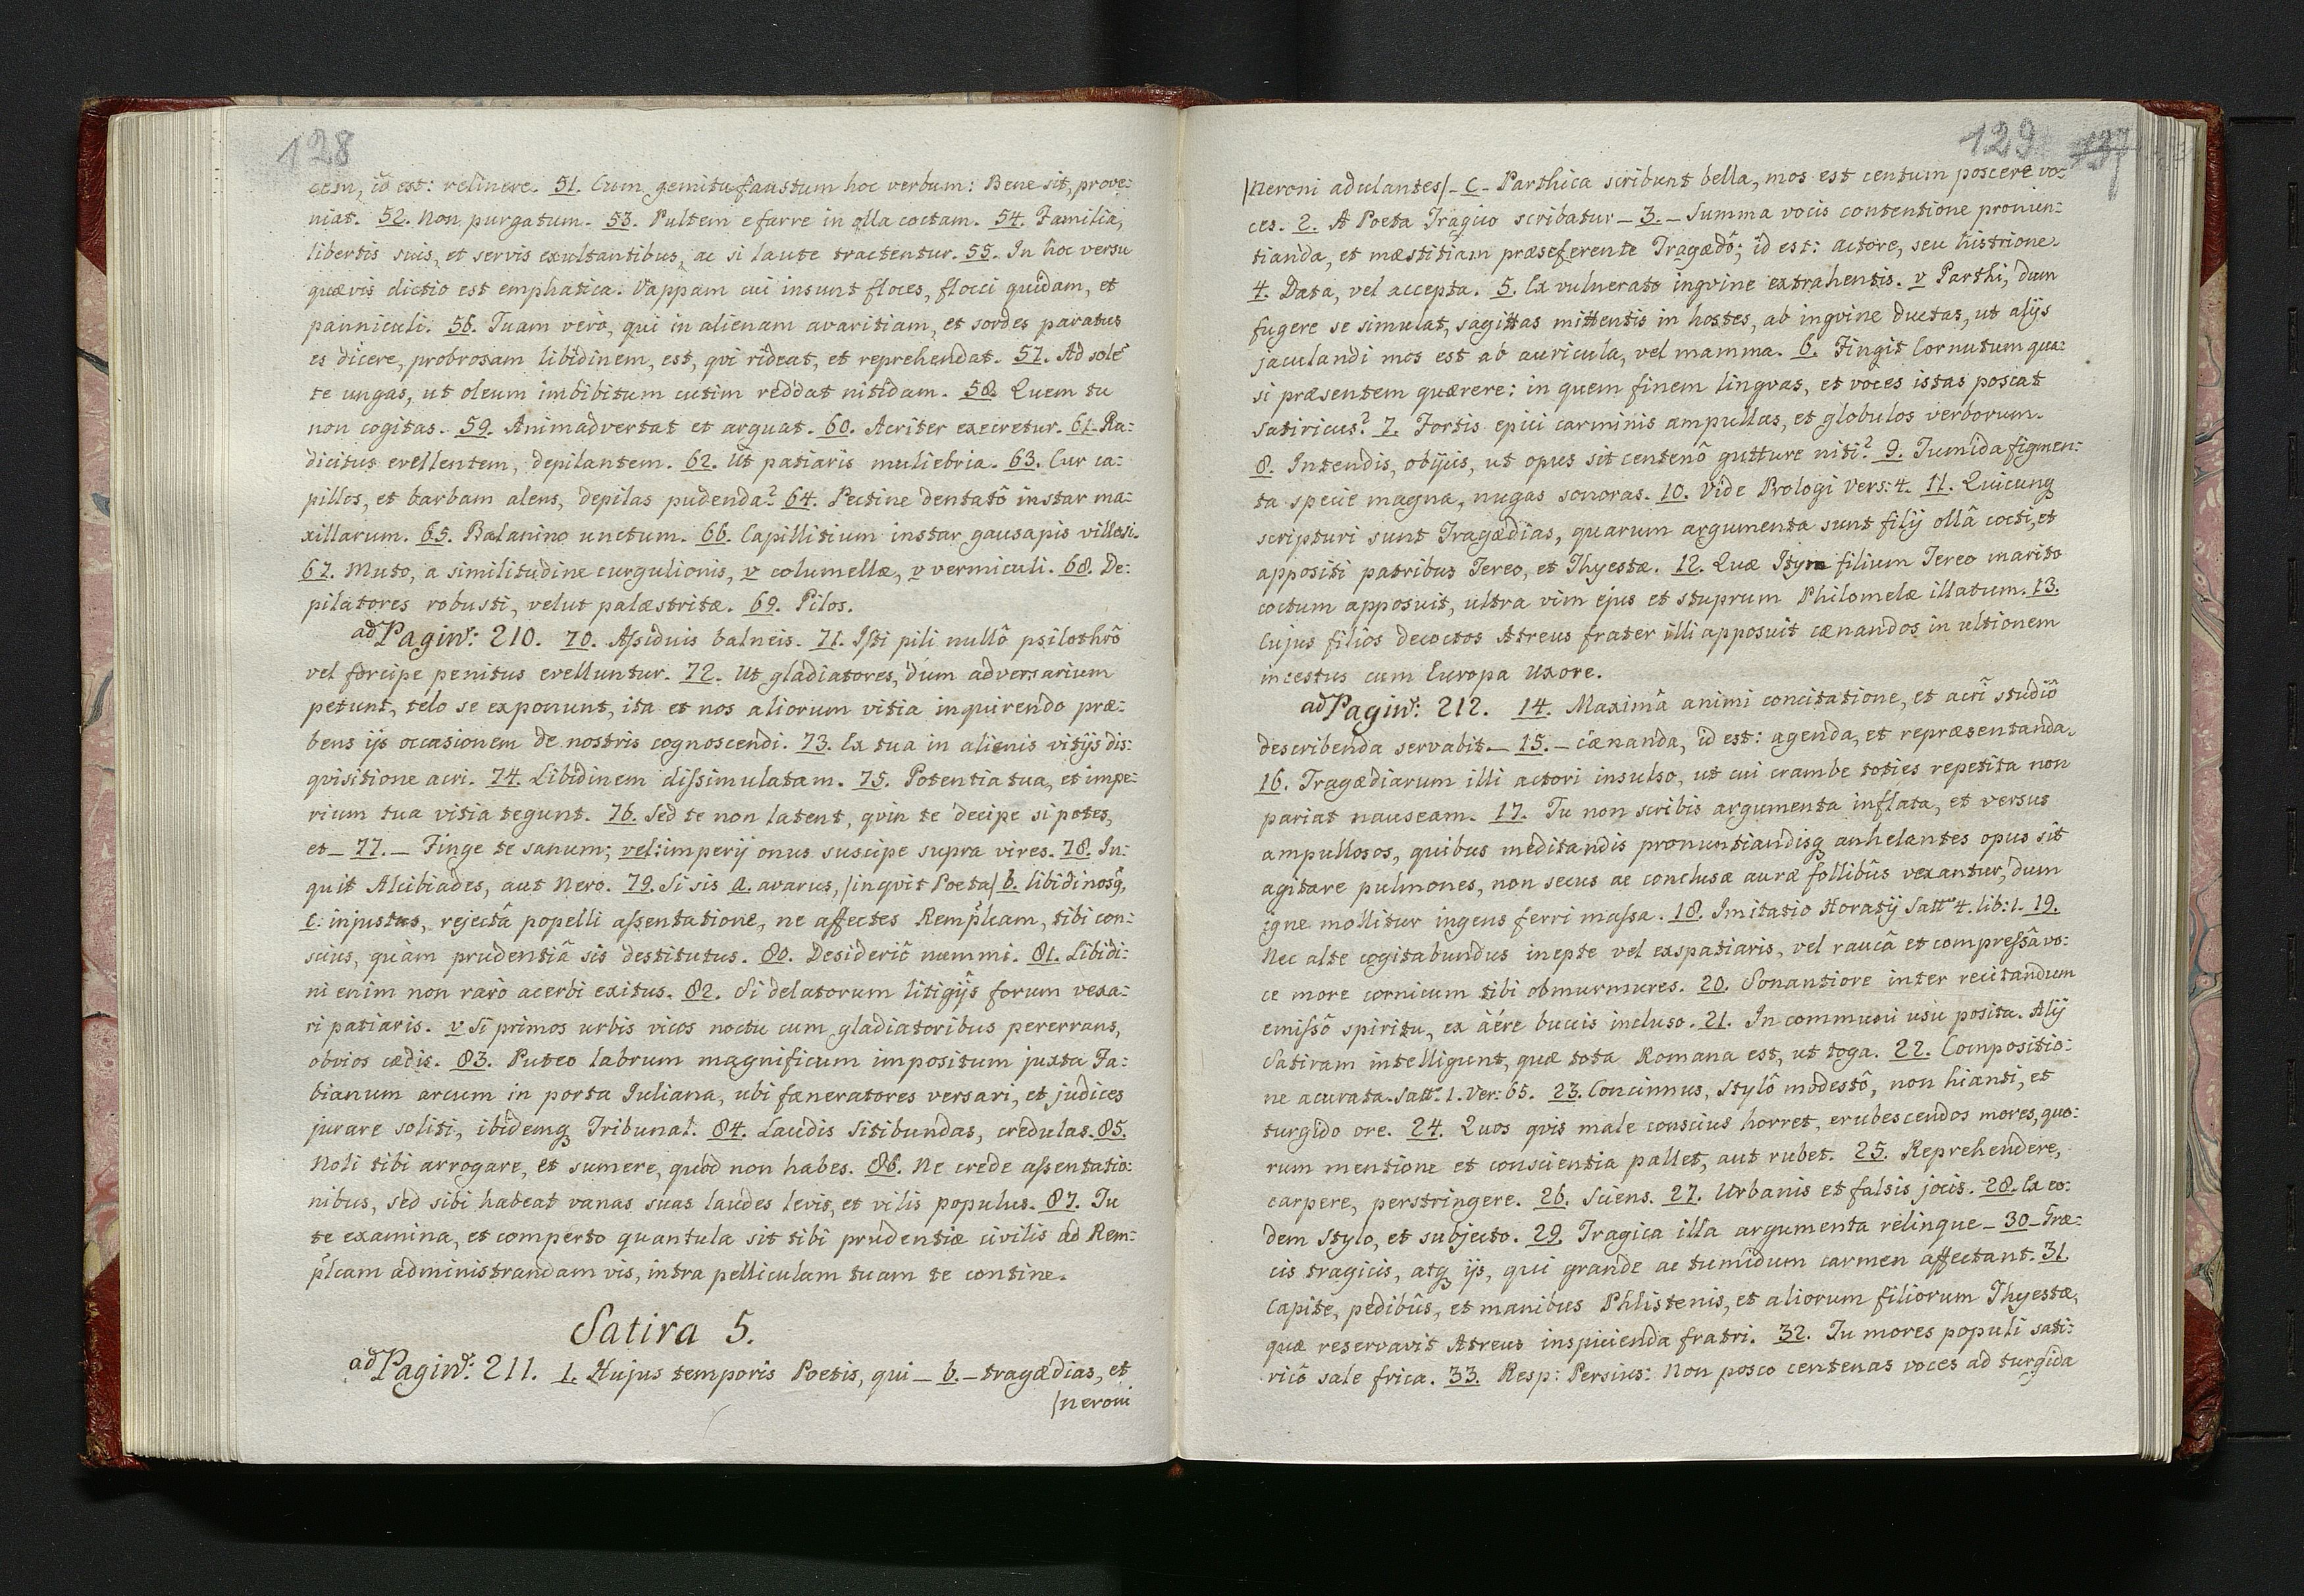 128
cem, id est: relinere. 51. Cum gemitu faustum hoc verbum: Bene sit, prove:
niat. 52. Non purgatum. 53. Pultem e farre in olla coctam. 54. Familia,
libertis suis, et servis exultantibus, ac si laute tractentur. 55. In hoc versu
quævis dictio est emphatica. Vappam cui insunt floces, flocci quidam, et
panniculi. 56. Tuam verò, qui in alienam avaritiam, et sordes paratus
es dicere, probrosam libidinem, est, qvi rideat, et reprehendat. 57. Ad solē
te ungas, ut oleum imbibitum cutim reddat nitidam. 58. Quem tu
non cogitas. 59. Animadvertat et arguat. 60. Acriter execretur. 61. Ra:
dicitus evellentem, depilantem. 62. Ut patiaris muliebria. 63. Cur ca:
pillos, et barbam alens, depilas pudenda? 64. Pectine dentatô instar ma:
xillarum. 65. Balanino unctum. 66. Capillitium instar gausapis villosi.
67. Muto, a similitudine curgulionis, v columellæ, v vermiculi. 68. De:
pilatores robusti, velut palæstritæ. 69. Pilos.
ad Pagin: 210. 70. Assiduis balneis. 71. Isti pili nullô psilothrô
vel forcipe penitus evelluntur. 72. Ut gladiatores, dum adversarium
petunt, telo se exponunt, ita et nos aliorum vitia inquirendo præ:
bens ijs occasionem de nostris cognoscendi. 73. Ex tua in alienis vitijs dis:
qvisitione acri. 74. Libidinem dissimulatam. 75. Potentia tua, et impe:
rium tua vitia tegunt. 76. Sed te non latent, qvin te decipe si potes,
et _ 77. _ Finge te sanum; vel: imperij onus suscipe supra vires. 78. In:
quit Alcibiades, aut Nero. 79. Si sis a. avarus, /inqvit Poeta/ b. libidinosq,
c. injustus, rejectâ popelli assentatione, ne affectes Remplcam, tibi con:
scius, quàm prudentiâ sis destitutus. 80. Desideriô nummi. 81. Libidi:
ni enim non rarò acerbi exitus. 82. Si delatorum litigijs forum vexa:
ri patiaris. v Si primos urbis vicos noctu cum gladiatoribus pererrans,
obvios cædis. 83. Puteo labrum magnificum impositum juxta Fa:
bianum arcum in porta Juliana, ubi fæneratores versari, et judices
jurare soliti, ibidemq Tribunal. 84. Laudis sitibundas, credulas. 85.
Noli tibi arrogare, et sumere, quod non habes. 86. Ne crede assentatio:
nibus, sed sibi habeat vanas suas laudes levis, et vilis populus. 87. Tu
te examina, et comperto quantula sit tibi prudentiæ civilis ad Rem:
plcam administrandam vis, intra pelliculam tuam te contine.
Satira 5.
ad Pagin: 211. 1. Hujus temporis Poetis, qui _ b. _ tragædias, et
/neroni
129
137
/Neroni adulantes/ _ c _ Parthica scribunt bella, mos est centum poscere vo:
ces. 2. A Poeta Tragico scribatur _ 3. _ Summa vocis contentione pronun:
tianda, et mæstitiam præseferente Tragædô; id est: actore, seu histrione.
4. Data, vel accepta. 5. Ex vulnerato ingvine extrahentis. v Parthi, dum
fugere se simulat, sagittas mittentis in hostes, ab ingvine ductas, ut alijs
jaculandi mos est ab auricula, vel mamma. 6. Fingit Cornutum qua:
si præsentem quærere: in quem finem lingvas, et voces istas poscat
Satiricus? 7. Fortis epici carminis ampullas, et globulos verborum.
8. Intendis, obijcis, ut opus sit centenô gutture niti? 9. Tumida figmen:
ta specie magna, nugas sonoras. 10. Vide Prologi Vers: 4. 11. Quicunq
scripturi sunt Tragædias, quarum argumenta sunt filij ollâ cocti, et
appositi patribus Tereo, et Thyestæ. 12. Quæ Itym filium Tereo marito
coctum apposuit, ultra vim ejus et stuprum Philomelæ illatum. 13.
Cujus filios decoctos Atreus frater illi apposuit cænandos in ultionem
incestus cum Europa Uxore.
ad Pagin: 212. 14. Maximâ animi concitatione, et acri studiô
describenda servabit _ 15. _ cænanda, id est: agenda, et repræsentanda.
16. Tragædiarum illi actori insulso, ut cui crambe toties repetita non
pariat nauseam. 17. Tu non scribis argumenta inflata, et versus
ampullosos, quibus meditandis pronuntiandisq anhelantes opus sit
agitare pulmones, non secus ac conclusæ auræ follibûs vexantur, dum
igne mollitur ingens ferri massa. 18. Imitatio Horatij Sat: 4. lib: 1. 19.
Nec alte cogitabundus inepte vel exspatiaris, vel raucâ et compressâ vo:
ce more cornicum tibi obmurmures. 20. Sonantiore inter recitandum
emissô spiritu, ex äére buccis incluso. 21. In communi usu posita. Alij
Satiram intelligunt, quæ tota Romana est, ut toga. 22. Compositio:
ne acurata. Sat: 1. Ver: 65. 23. Concinnus, stylô modestô, non hianti, et
turgido ore. 24. Quos qvis male conscius horret, erubescendos mores, quo:
rum mentione et conscientia pallet, aut rubet. 25. Reprehendere,
carpere, perstringere. 26. Sciens. 27. Urbanis et falsis jocis. 28. Ex eo:
dem stylo, et subjecto. 29. Tragica illa argumenta relinque _ 30 _ Græ:
cis tragicis, atq ijs, qui grande ac tumidum carmen affectant. 31.
Capite, pedibûs, et manibus Phlistenis, et aliorum filiorum Thyestæ,
quæ reservavit Atreus inspicienda fratri. 32. Tu mores populi sati:
ricô sale frica. 33. Resp: Persius: Non posco centenas voces ad turgida